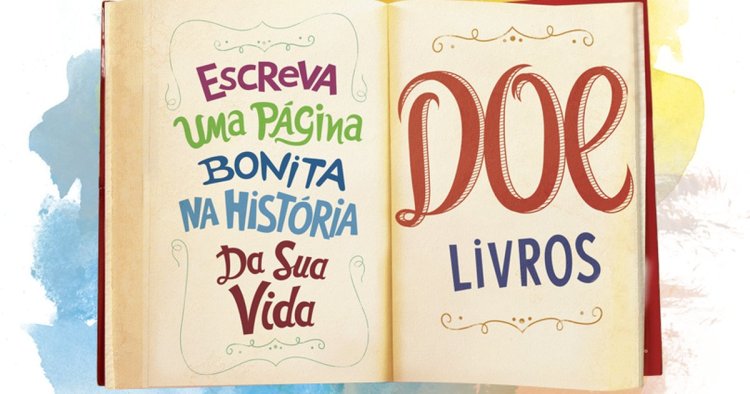 ESCREVA
UMA PÁGINA
BONITA
NA HISTÓRIA
Da Sua
Vida
DOE
LiVROS